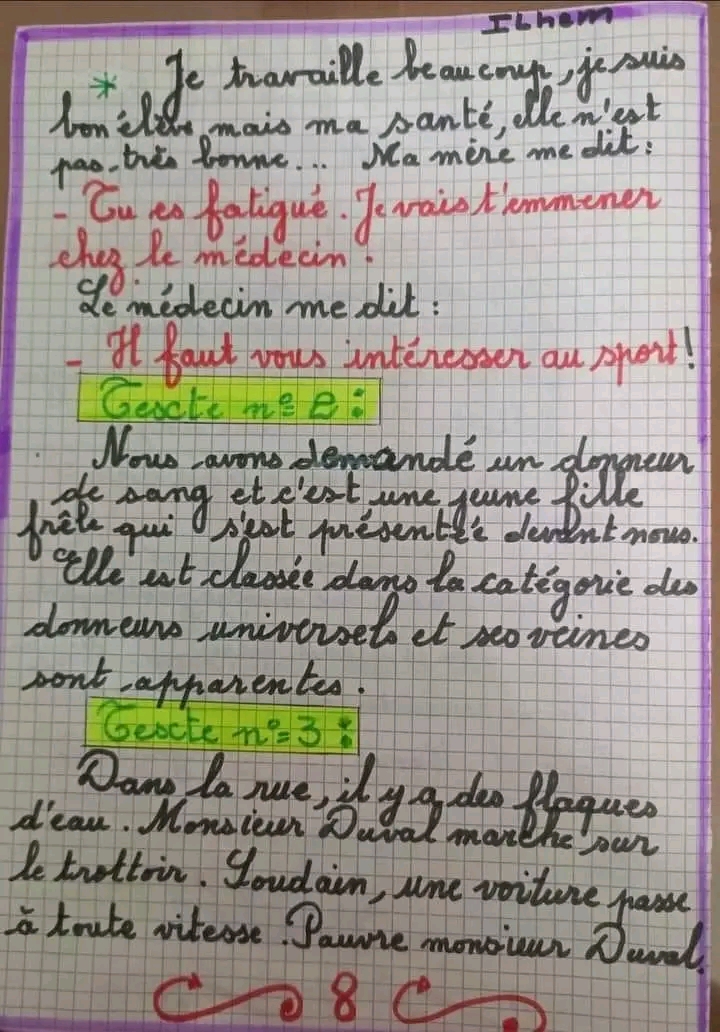 ILhem
* Je travaille beaucoup, je suis
bon élève, mais ma santé, elle n'est
pas très bonne... Ma mère me dit :
- Tu es fatigué. Je vais t'emmener
chez le médecin.
Le médecin me dit :
- Il faut vous intéresser au sport !
Texte n° 2 :
Nous avons demandé un donneur
de sang et c'est une jeune fille
frêle qui s'est présentée devant nous.
Elle est classée dans la catégorie des
donneurs universels et ses veines
sont apparentes.
Texte n° 3 :
Dans la rue, il y a des flaques
d'eau. Monsieur Duval marche sur
le trottoir. Soudain, une voiture passe
à toute vitesse. Pauvre monsieur Duval.
8